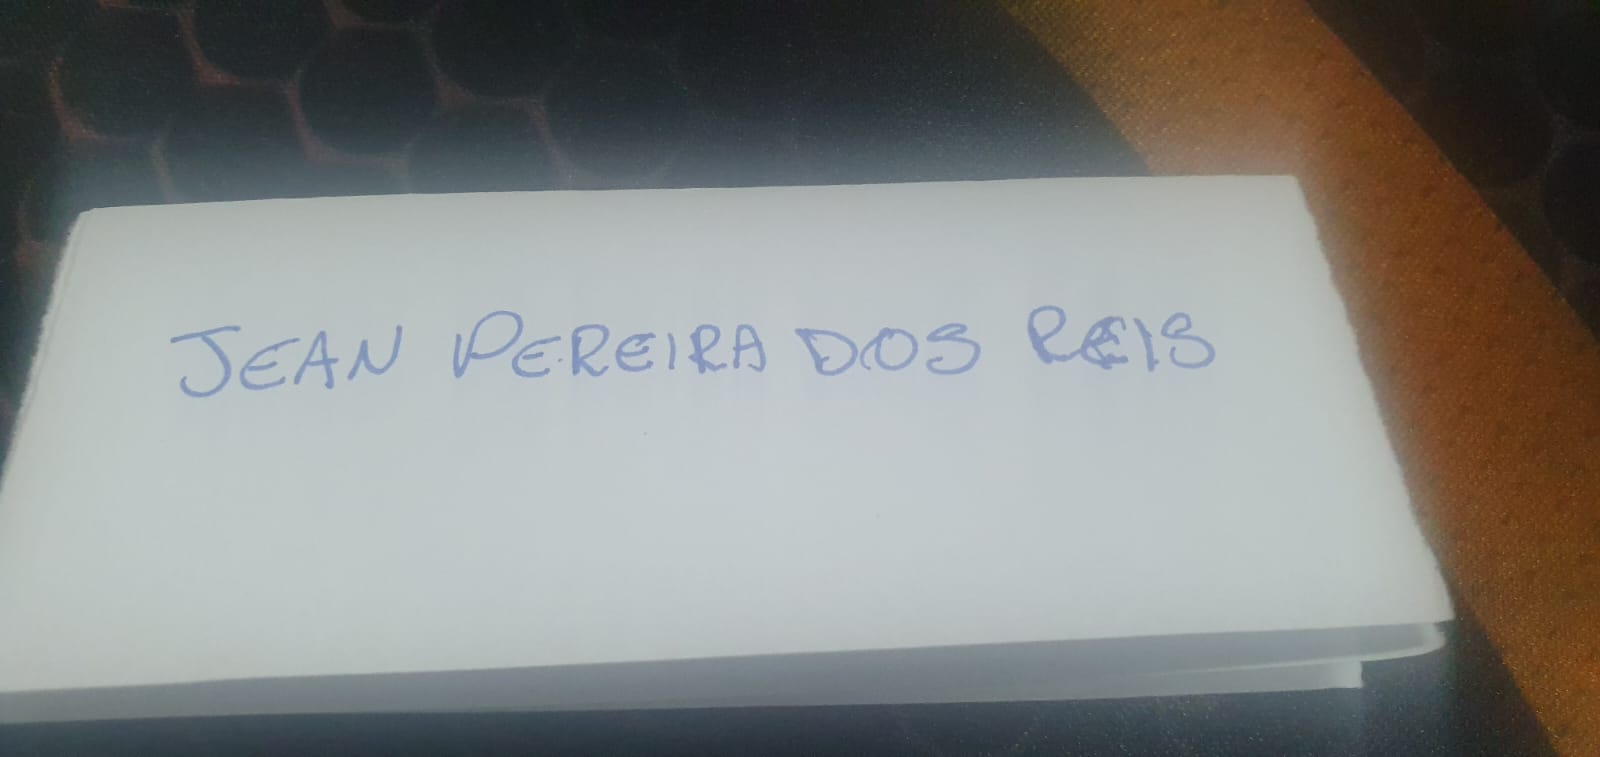 JEAN PEREIRA DOS REIS